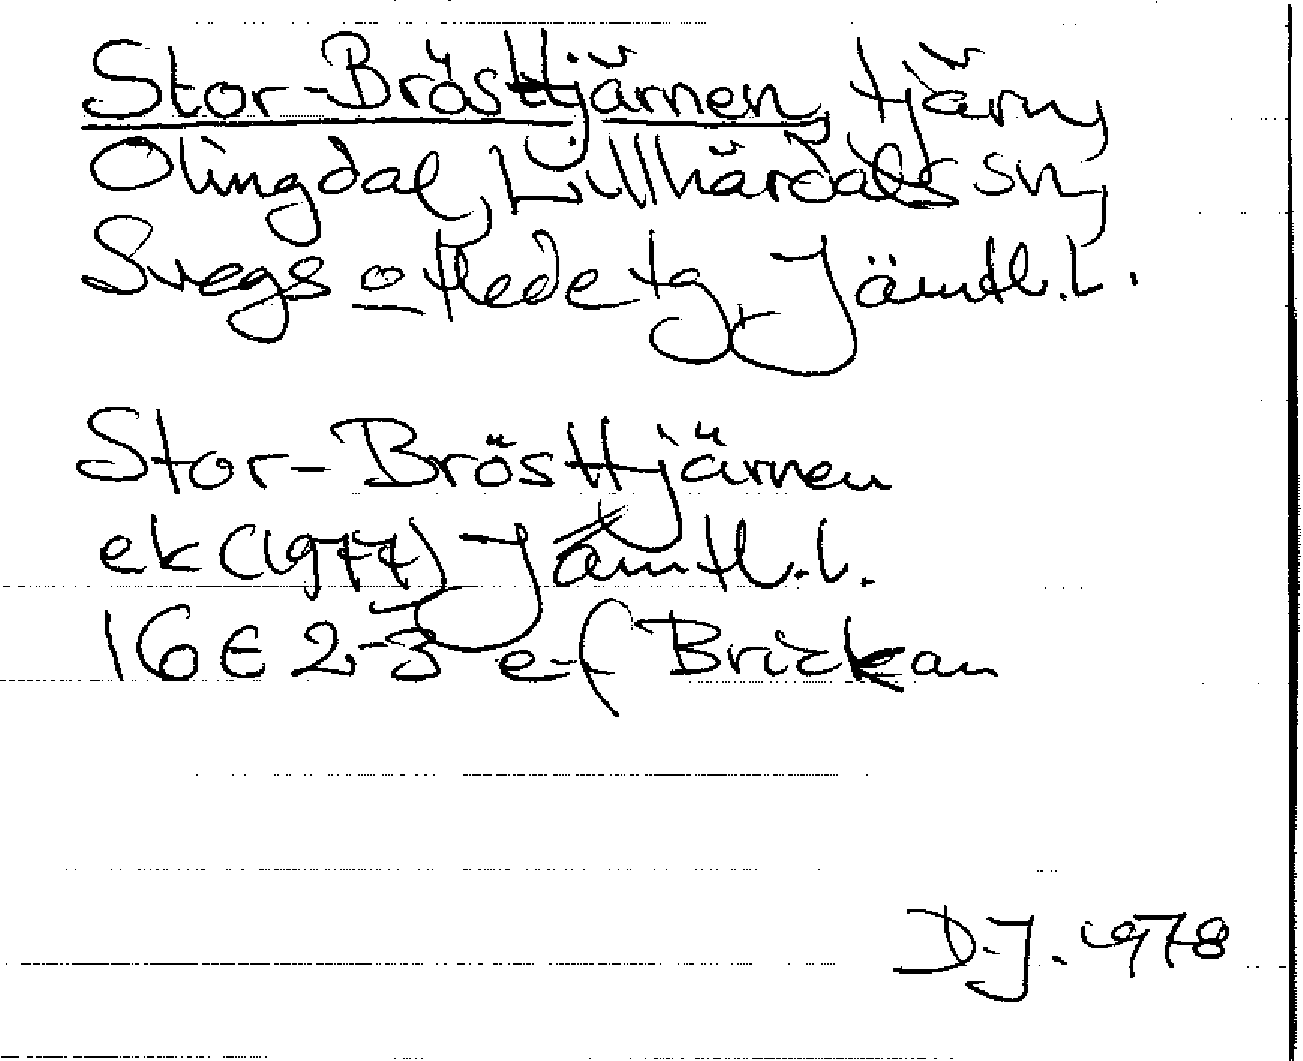 Stor-Brösttjärnen, tjärn,
Olingdal, Lillhärdals sn,
Svegs o Hede tg, Jämtl. l.
Stor-Brösttjärnen
ek (1977) Jämtl. l.
16E 2-3 e-f Brickan
D.J. 1978